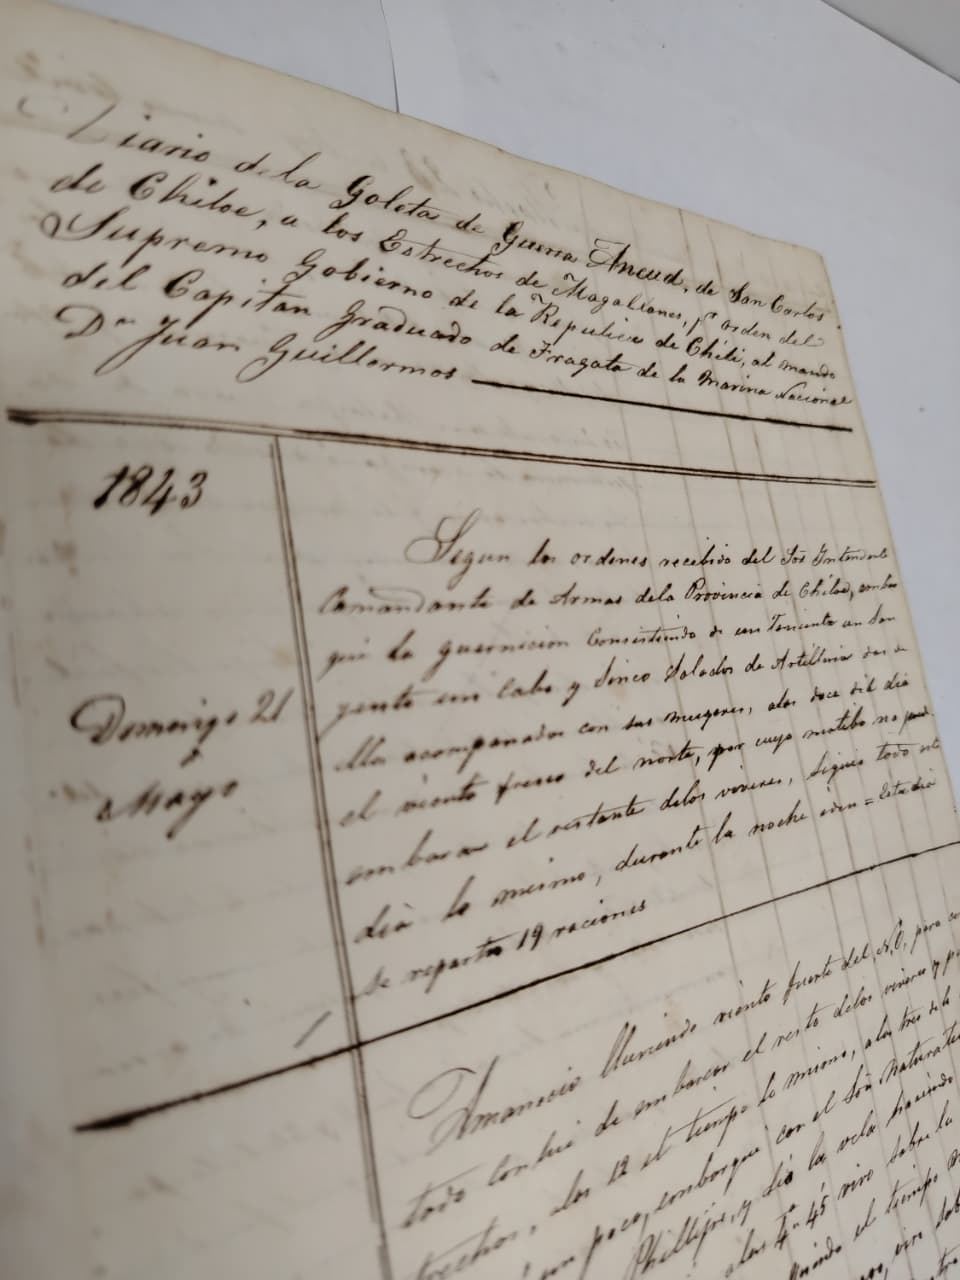 Diario de la Goleta de Guerra Ancud, de San Carlos
de Chiloe, a los Estrechos de Magallanes, pr orden del
Supremo Gobierno de la Republica de Chili, al mando
del Capitan Graduado de Fragata de la Marina Nacional
Dn Juan Guillermos
1843
Domingo 21
Mayo
Segun los ordenes recibido del Sor Intendente
Comandante de Armas dela Provincia de Chiloé, embar
qué la guarnicion Consistiendo de un Teniente un Sar
jento un Cabo y Sinco Soldados de Artilleria dos de
ellos acompanados con sus mugeres, alas doce del dia
el viento fresco del norte, por cuyo motibo no pude
embarcar el restante delos viveres, siguio todo este
dia lo mismo, durante la noche idem = Este dia
se repartio 19 raciones
Amanecio lluviendo viento fuerte del N.O, para
todo conclui de embarcar el resto delos viveres y
trechos, alas 12 el tiempo lo mismo, alas tres de la
un poco, embarqué con el Sor Naturalista
Phillipi, y dió la vela haciendo
alas 4h 45 viro sobre la
el tiempo
viro